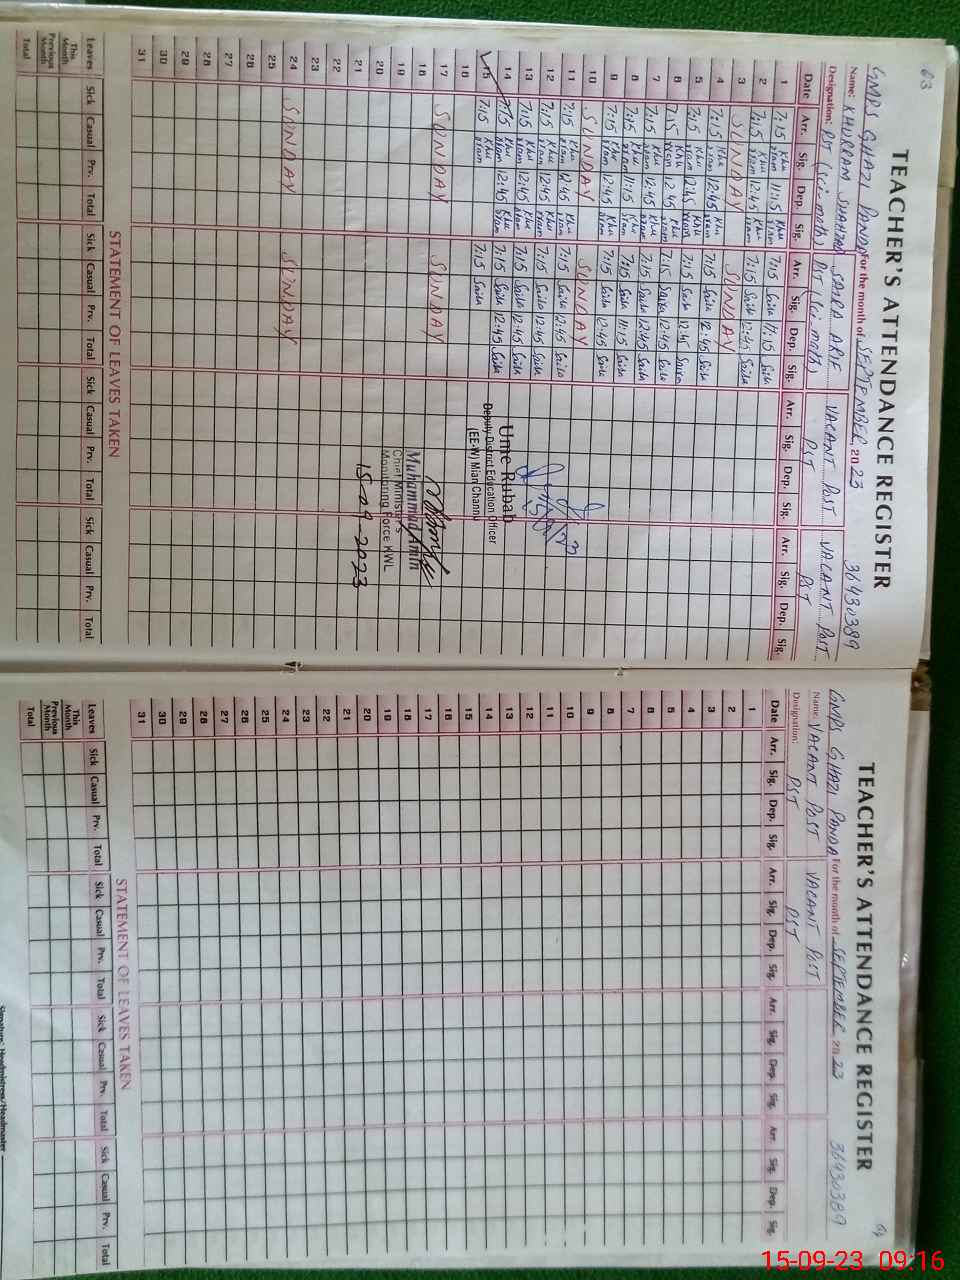 63
TEACHER'S ATTENDANCE REGISTER
GMPS GHAZI PANDA For the month of SEPTEMBER, 2023 36430389
Name: KHURRAM SHAHZAD SAIRA ARIF VACANT POST VACANT POST
Designation: PST (Sci-math) PST (Sci-math) PST PST
Date Arr. Sig. Dep. Sig. Arr. Sig. Dep. Sig. Arr. Sig. Dep. Sig. Arr. Sig. Dep. Sig.
1 7:15 11:15 7:15 Saira 11:15 Saira
2 7:15 12:45 7:15 Saira 12:45 Saira
3 SUNDAY SUNDAY
4 7:15 12:45 7:15 Saira 12:45 Saira
5 7:15 12:45 7:15 Saira 12:45 Saira
6 7:15 12:45 7:15 Saira 12:45 Saira
7 7:15 12:45 7:15 Saira 12:45 Saira
8 7:15 11:15 7:15 Saira 11:15 Saira
9 7:15 12:45 7:15 Saira 12:45 Saira
10 SUNDAY SUNDAY
11 7:15 12:45 7:15 Saira 12:45 Saira
12 7:15 12:45 7:15 Saira 12:45 Saira
13 7:15 12:45 7:15 Saira 12:45 Saira
14 7:15 12:45 7:15 Saira 12:45 Saira
15 7:15 7:15 Saira
16
17 SUNDAY SUNDAY
18
19
20
21
22
23
24 SUNDAY SUNDAY
25
26
27
28
29
30
31
Ume Rubab
Deputy District Education Officer
(EE-W) Mian Channu
Muhammad Amin
Chief Minister's
Monitoring Force KWL
15-09-2023
STATEMENT OF LEAVES TAKEN
Leaves Sick Casual Prv. Total Sick Casual Prv. Total Sick Casual Prv. Total Sick Casual Prv. Total
This Month
Previous Month
Total
TEACHER'S ATTENDANCE REGISTER
GMPS GHAZI PANDA For the month of SEPTEMBER 2023 36430389
Name: VACANT POST VACANT POST
Designation: PST PST
Date Arr. Sig. Dep. Sig. Arr. Sig. Dep. Sig. Arr. Sig. Dep. Sig. Arr. Sig. Dep. Sig.
1
2
3
4
5
6
7
8
9
10
11
12
13
14
15
16
17
18
19
20
21
22
23
24
25
26
27
28
29
30
31
STATEMENT OF LEAVES TAKEN
Leaves Sick Casual Prv. Total Sick Casual Prv. Total Sick Casual Prv. Total Sick Casual Prv. Total
This Month
Previous Month
Total
Signature: Headmistress/Headmaster
15-09-23 09:16